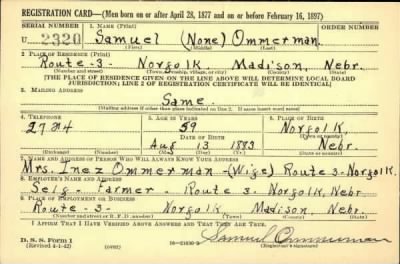 REGISTRATION CARD—(Men born on or after April 28, 1877 and on or before February 16, 1897)
SERIAL NUMBER 1. NAME (Print) ORDER NUMBER
U 2320 Samuel (None) Ommerman
(First) (Middle) (Last)
2. PLACE OF RESIDENCE (Print)
Route-3- Norfolk, Madison, Nebr.
(Number and street) (Town, township, village, or city) (County) (State)
[THE PLACE OF RESIDENCE GIVEN ON THE LINE ABOVE WILL DETERMINE LOCAL BOARD
JURISDICTION; LINE 2 OF REGISTRATION CERTIFICATE WILL BE IDENTICAL]
3. MAILING ADDRESS
Same.
[Mailing address if other than place indicated on line 2. If same insert word same]
4. TELEPHONE 5. AGE IN YEARS 6. PLACE OF BIRTH
59 Norfolk
DATE OF BIRTH
Aug 13 1883 Nebr.
(Exchange) (Number) (Mo.) (Day) (Yr.) (State or country)
7. NAME AND ADDRESS OF PERSON WHO WILL ALWAYS KNOW YOUR ADDRESS
Mrs. Inez Ommerman-(Wife) Route 3-Norfolk.
8. EMPLOYER'S NAME AND ADDRESS
Self- Farmer- Route 3- Norfolk, Nebr
9. PLACE OF EMPLOYMENT OR BUSINESS
Route-3- Norfolk Madison, Nebr.
(Number and street or R. F. D. number) (Town) (County) (State)
I AFFIRM THAT I HAVE VERIFIED ABOVE ANSWERS AND THAT THEY ARE TRUE.
D. S. S. Form 1
(Revised 4-1-42) (over) Samuel Ommerman